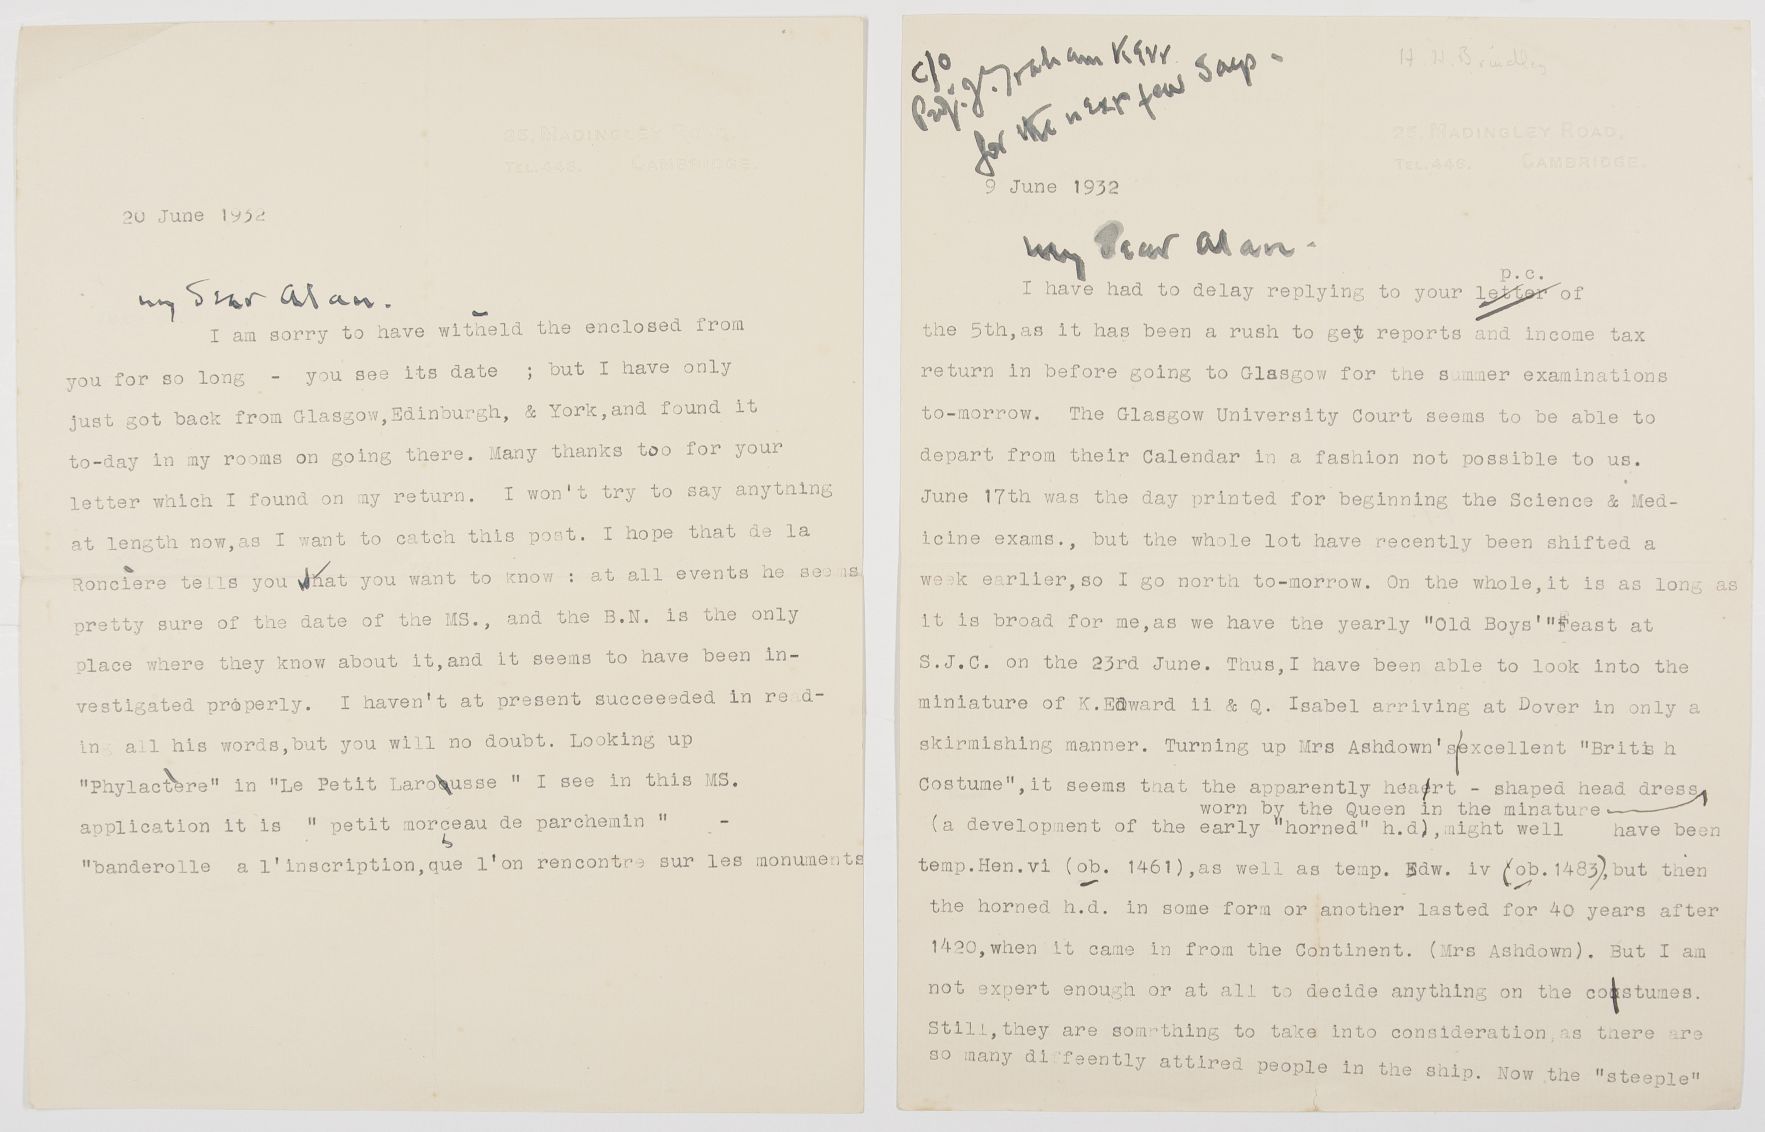 25, MADINGLEY ROAD,
TEL. 446. CAMBRIDGE.
20 June 1932
My Dear Alan.
I am sorry to have witheld the enclosed from
you for so long - you see its date ; but I have only
just got back from Glasgow,Edinburgh, & York,and found it
to-day in my rooms on going there. Many thanks too for your
letter which I found on my return. I won't try to say anything
at length now,as I want to catch this post. I hope that de la
Roncière tells you what you want to know : at all events he seems
pretty sure of the date of the MS., and the B.N. is the only
place where they know about it,and it seems to have been in-
vestigated properly. I haven't at present succeeeded in read-
ing all his words,but you will no doubt. Looking up
"Phylactère" in "Le Petit Larousse " I see in this MS.
application it is " petit morçeau de parchemin " -
"banderolle a l'inscription,que l'on rencontre sur les monuments
c/o
Prof. J. Graham Kerr
for the next few days -
H. H. Brindley
25, MADINGLEY ROAD,
TEL. 446. CAMBRIDGE.
9 June 1932
My Dear Alan -
p.c.
I have had to delay replying to your letter of
the 5th,as it has been a rush to get reports and income tax
return in before going to Glasgow for the summer examinations
to-morrow. The Glasgow University Court seems to be able to
depart from their Calendar in a fashion not possible to us.
June 17th was the day printed for beginning the Science & Med-
icine exams., but the whole lot have recently been shifted a
week earlier,so I go north to-morrow. On the whole,it is as long as
it is broad for me,as we have the yearly "Old Boys'"Feast at
S.J.C. on the 23rd June. Thus,I have been able to look into the
miniature of K.Edward ii & Q. Isabel arriving at Dover in only a
skirmishing manner. Turning up Mrs Ashdown's excellent "Britis h
Costume",it seems that the apparently heart - shaped head dress
worn by the Queen in the minature
(a development of the early "horned" h.d),might well have been
temp.Hen.vi (ob. 1461),as well as temp. Edw. iv (ob.1483),but then
the horned h.d. in some form or another lasted for 40 years after
1420,when it came in from the Continent. (Mrs Ashdown). But I am
not expert enough or at all to decide anything on the costumes.
Still,they are something to take into consideration,as there are
so many diffeently attired people in the ship. Now the "steeple"